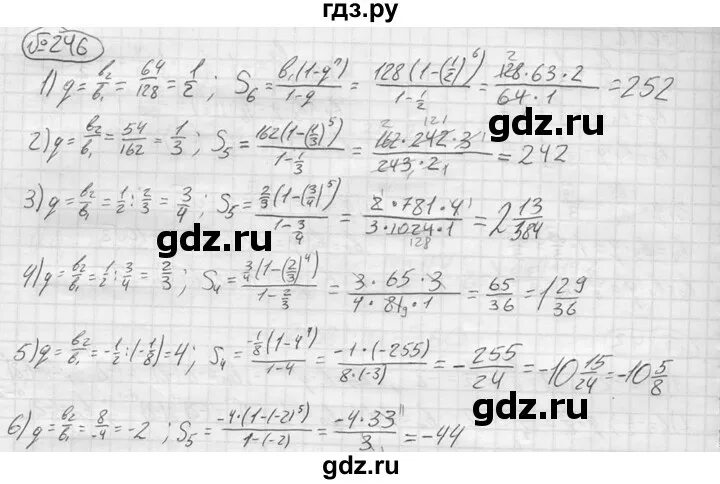 гдз.ру
№246
1) q = b₂/b₁ = 64/128 = 1/2 ; S₆ = b₁(1-qⁿ)/(1-q) = 128(1-(1/2)⁶)/(1-1/2) = 128·63·2/(64·1) = 252
2) q = b₂/b₁ = 54/162 = 1/3 ; S₅ = 162(1-(1/3)⁵)/(1-1/3) = 162·242·3/(243·2) = 242
3) q = b₂/b₁ = 1/2 : 2/3 = 3/4 ; S₅ = 2/3(1-(3/4)⁵)/(1-3/4) = 2·781·4/(3·1024·1) = 2 13/384
gdz.ru
gdz.ru
4) q = b₂/b₁ = 1/2 : 3/4 = 2/3 ; S₄ = 3/4(1-(2/3)⁴)/(1-2/3) = 3·65·3/(4·81·1) = 65/36 = 1 29/36
5) q = b₂/b₁ = -1/2 : (-1/8) = 4 ; S₄ = -1/8(1-4⁴)/(1-4) = -1·(-255)/(8·(-3)) = -255/24 = -10 15/24 = -10 5/8
6) q = b₂/b₁ = 8/-4 = -2 ; S₅ = -4·(1-(-2)⁵)/(1-(-2)) = -4·33/3 = -44
gdz.ru
gdz.ru